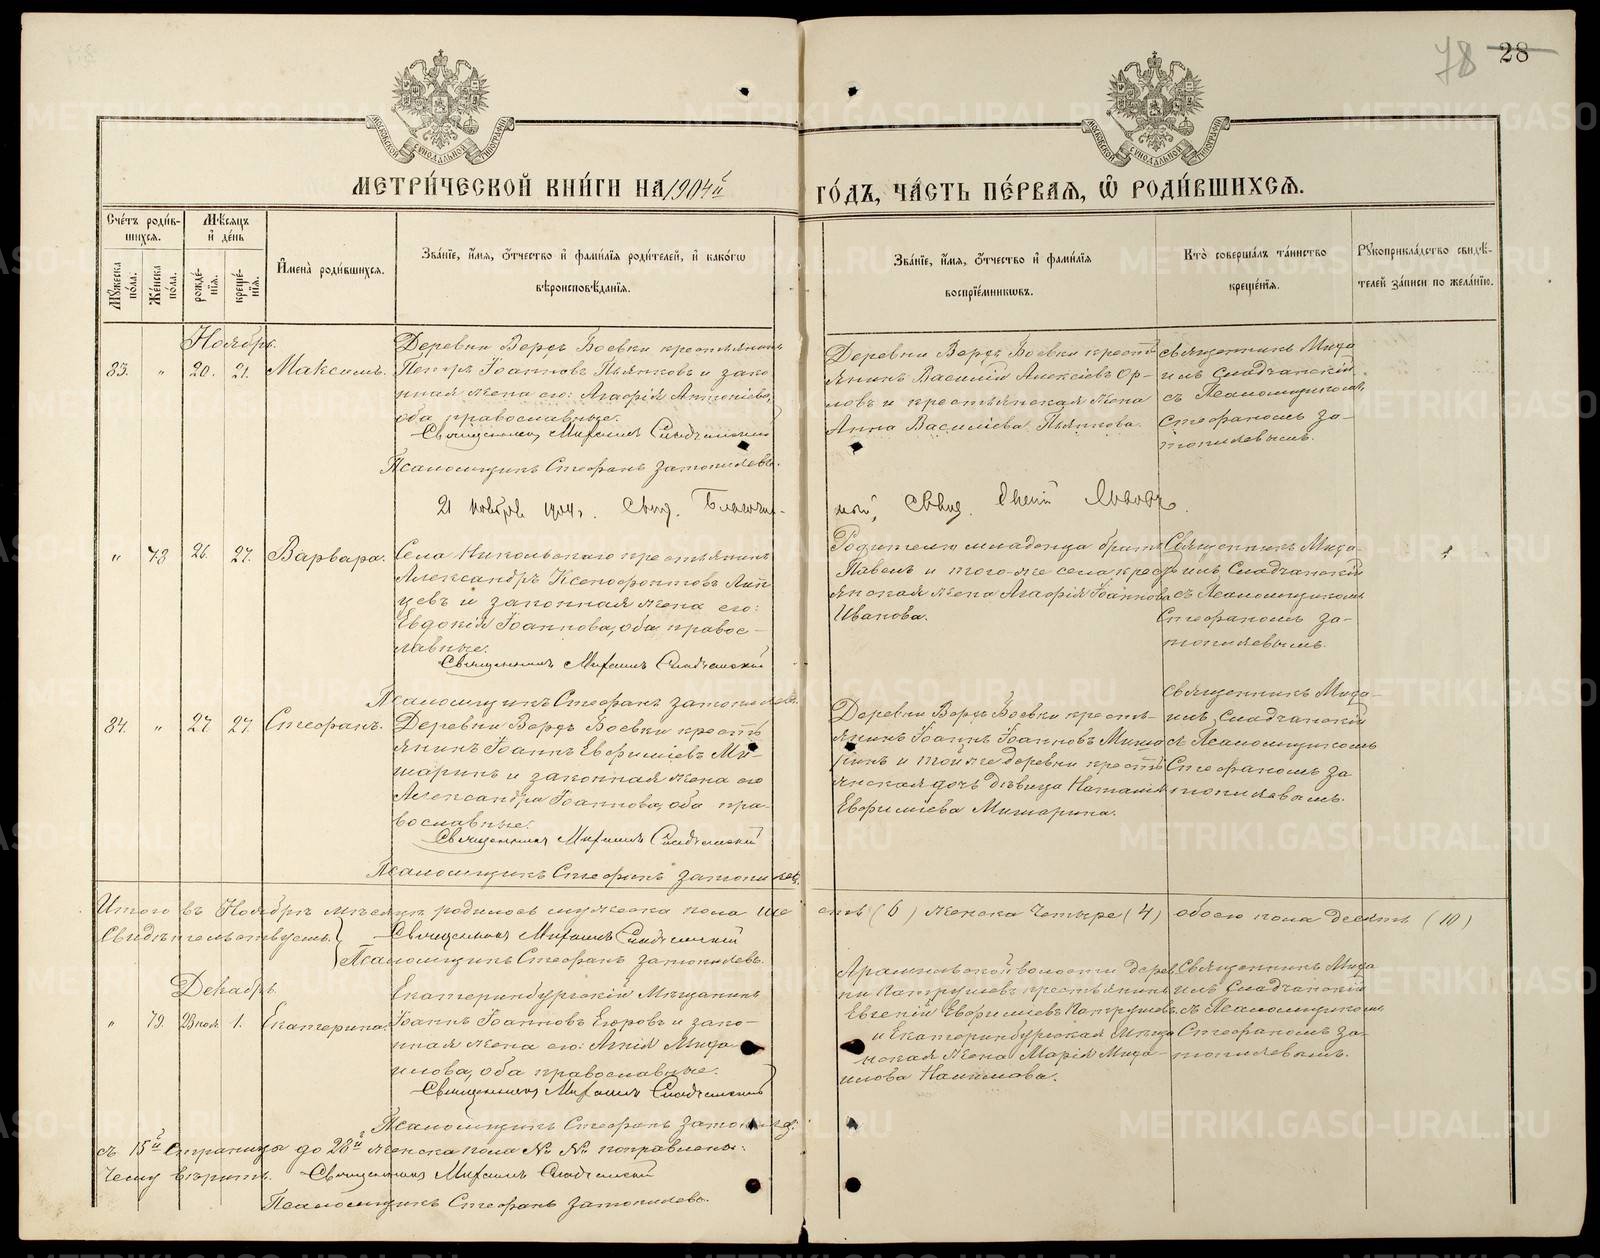 28
78
МЕТРИ́ЧЕСКОЙ КНИ́ГИ НА 1904й ГО́ДЪ, ЧА́СТЬ ПЕ́РВАЯ, Ѡ РОДИ́ВШИХСЯ.
Сче́тъ роди́в-
шихся.
Мѣ́сяцъ
и де́нь
Му́жеска по́ла.
Же́нска по́ла.
рожде́-
нїя.
креще́-
нїя.
И́мена̀ роди́вшихся.
Зва́нїе, и́мя, о́тчество и фами́лїя роди́телей, и како́гѡ
вѣроисповѣ́данїя.
Зва́нїе, и́мя, о́тчество и фами́лїя
воспрїе́мниковъ.
Кто̀ соверша́лъ та́инство
креще́нїя.
Рукоприкла́дство свидѣ́-
телей за́писи по жела́нїю.
Ноябрь.
83. " 20. 21. Максимъ.
Деревни Верхъ Боевки крестьянинъ
Петръ Іоанновъ Пьянковъ и зако-
нная жена его: Агафія Антоніева,
оба православные.
Священникъ Михаилъ Сладчанскій
Псаломщикъ Стефанъ Затопляевъ.
Деревни Верхъ Боевки кресть-
янинъ Василій Алексіевъ Ор-
ловъ и крестьянская жена
Анна Василіева Пьянкова.
Священникъ Миха
илъ Сладчанскій
съ Псаломщикомъ
Стефаномъ За-
топляевымъ.
21 Ноября 1904 г.
" 78 26. 27. Варвара.
Села Никольскаго крестьянинъ
Александръ Ксенофонтовъ
и законная жена его:
Евдокія Іоаннова, оба правос-
лавные.
Священникъ Михаилъ Сладчанскій
Псаломщикъ Стефанъ Затопляевъ.
Родителю младенца братъ
Павелъ и того-же села крес-
янская жена Агафія Іоаннова
Иванова.
Священникъ Миха-
илъ Сладчанскій
съ Псаломщикомъ
Стефаномъ За-
топляевымъ.
84. " 27. 27. Стефанъ.
Деревни Верхъ Боевки кресть
янинъ Іоаннъ Евфиміевъ Ми-
шаринъ и законная жена его
Александра Іоаннова, оба пра-
вославные.
Священникъ Михаилъ Сладчанскій
Псаломщикъ Стефанъ Затопляевъ.
Деревни Верхъ Боевки кресть-
янинъ Іоаннъ Іоанновъ Миша
ринъ и той же деревни кресть
янская дочь дѣвица Наталія
Евфиміева Мишарина.
Священникъ Миха-
илъ Сладчанскій
съ Псаломщикомъ
Стефаномъ За
топляевымъ.
Итого въ Ноябрѣ мѣсяцѣ родилось мужеска пола ше сть (6) женска четыре (4) обоего пола десять (10)
Свидѣтельствуемъ: Священникъ Михаилъ Сладчанскій
Псаломщикъ Стефанъ Затопляевъ.
Декабрь.
" 79. 28 ноя. 1. Екатерина.
Екатеринбургскій Мѣщанинъ
Іоаннъ Іоанновъ и зако-
нная жена его: Миха
илова, оба православные.
Священникъ Михаилъ Сладчанскій
Псаломщикъ Стефанъ
Арамильской волости дерев
ни Патрушевъ крестьянинъ
Евгеній Евфиміевъ Патрушевъ
и Екатеринбургская Мѣща
нская жена Марія Миха-
илова
Священникъ Миха
илъ Сладчанскій
съ Псаломщикомъ
Стефаномъ За-
топляевымъ.
съ 15й страницы до 28й женска пола №№ поправлены:
чему вѣрить. Священникъ Михаилъ Сладчанскій
Псаломщикъ Стефанъ Затопляевъ.